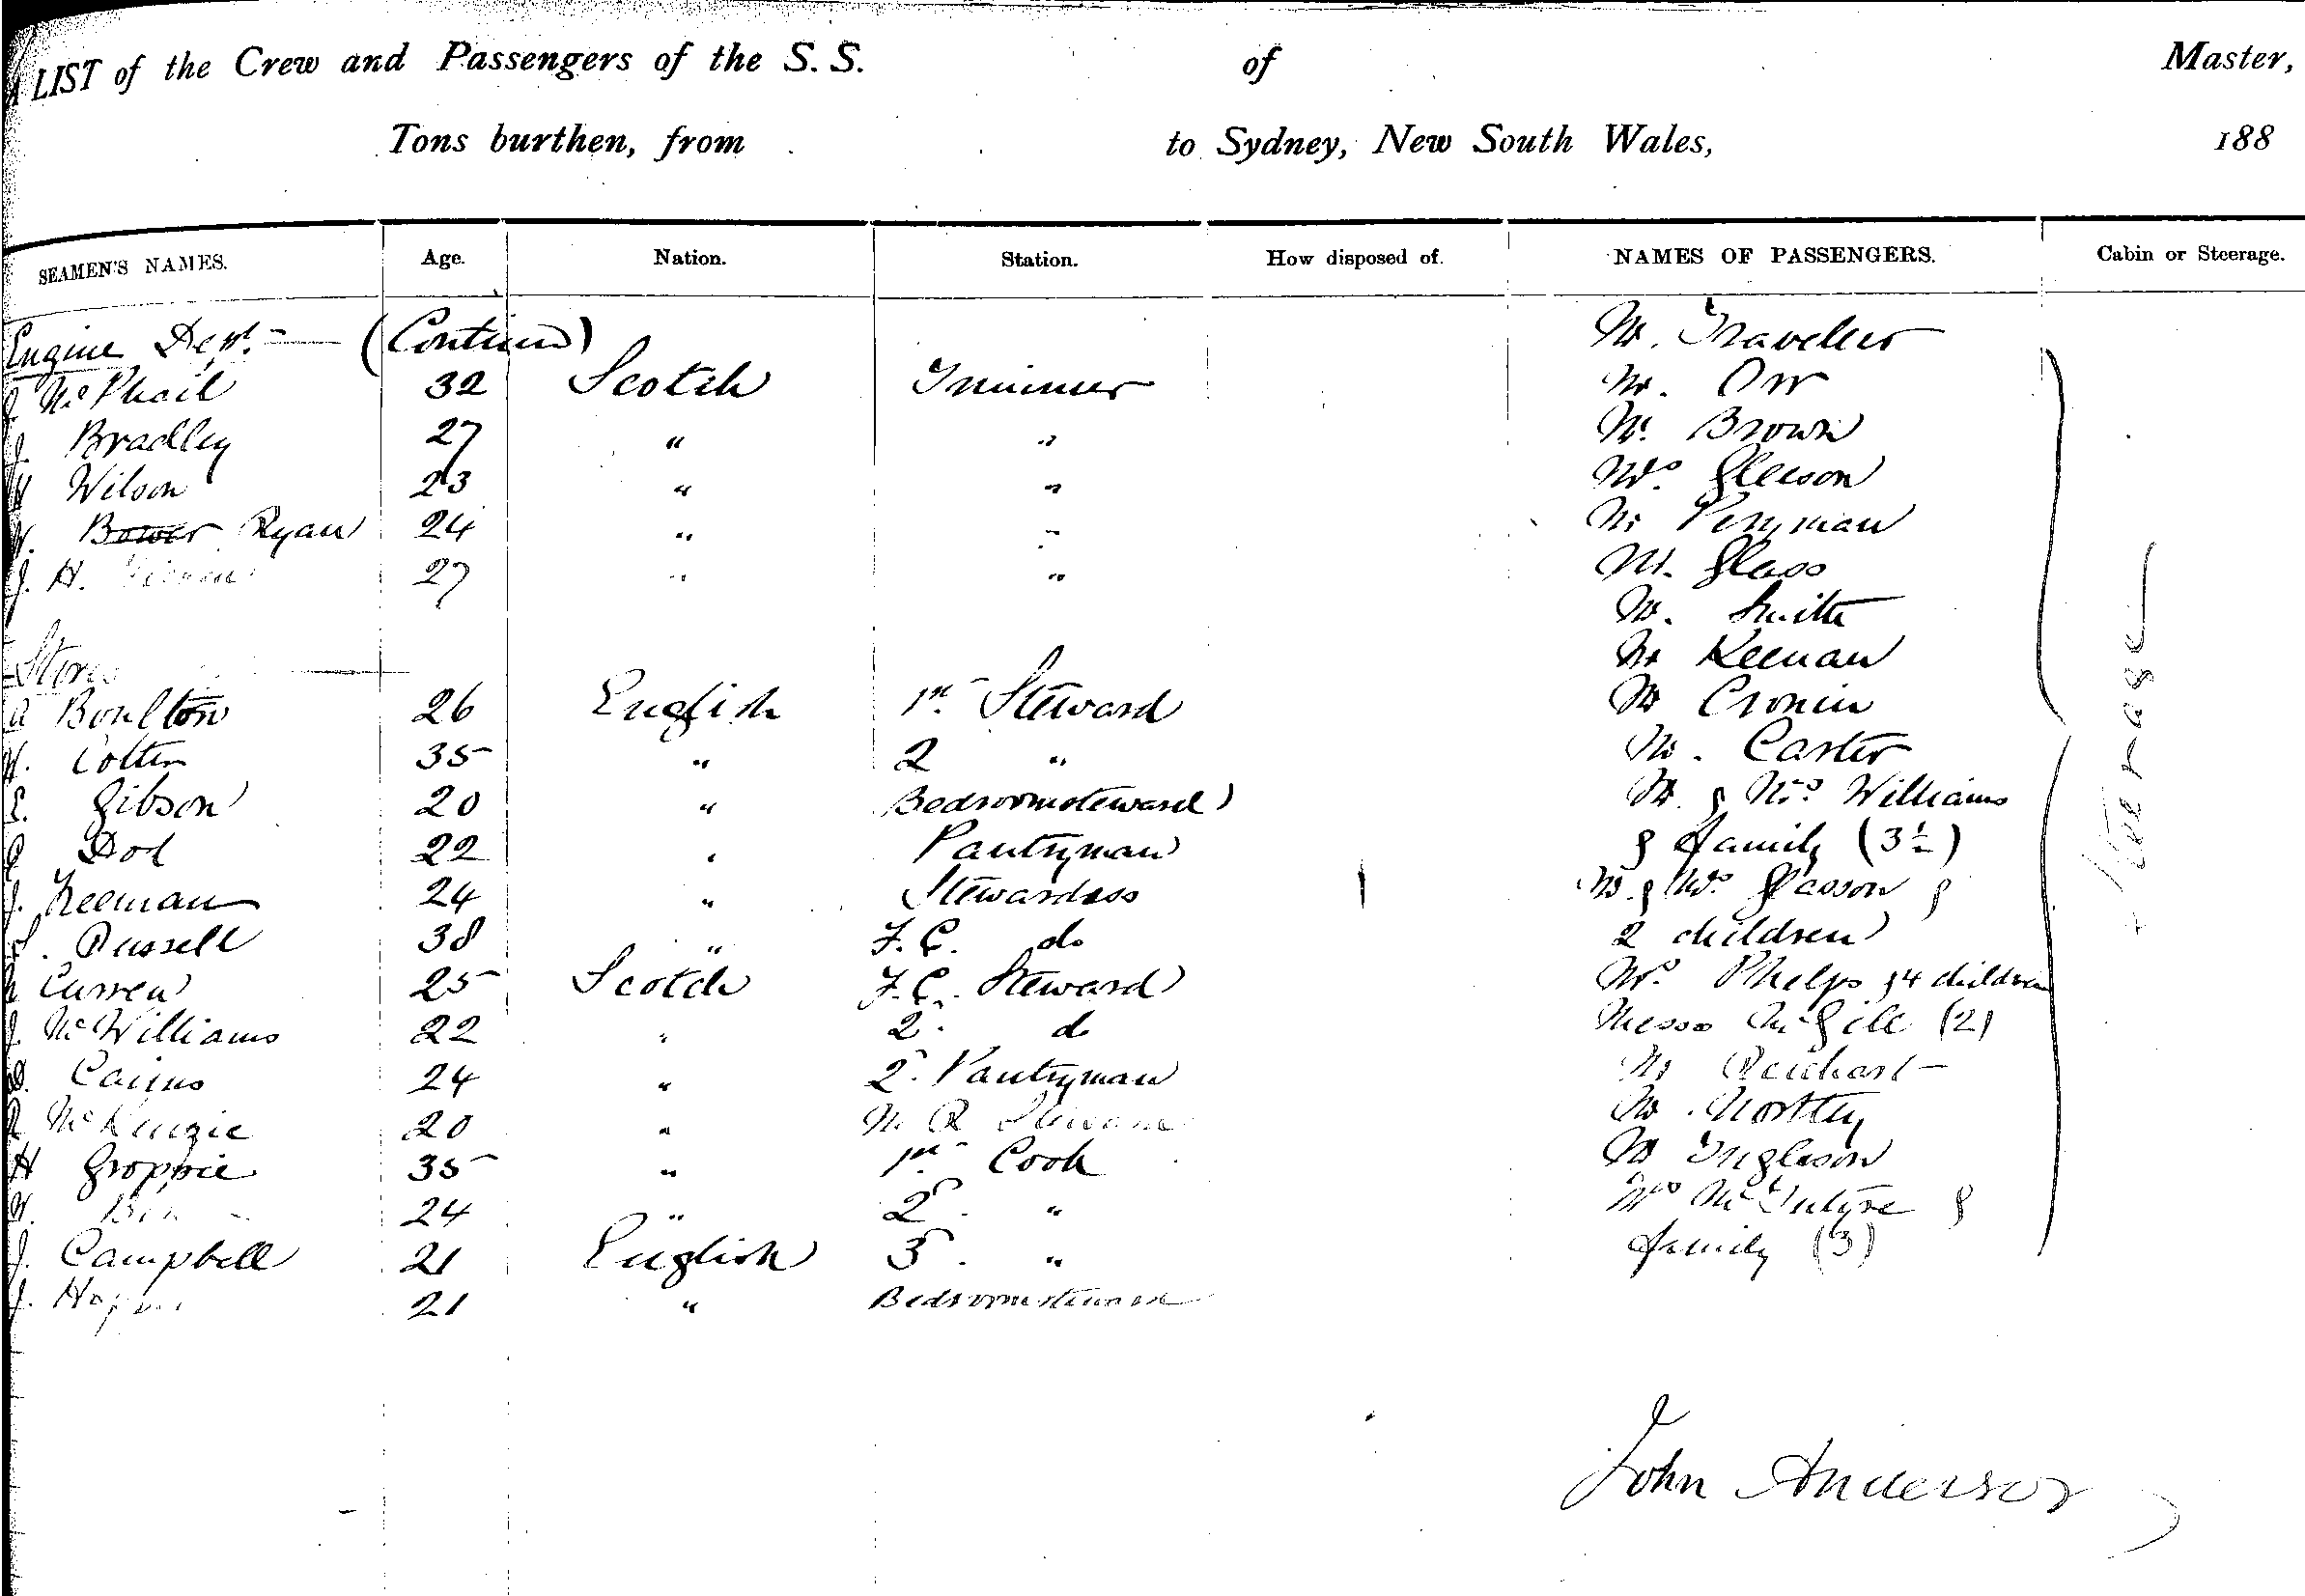 A LIST of the Crew and Passengers of the S. S. of Master,
Tons burthen, from to Sydney, New South Wales, 188
SEAMEN'S NAMES. Age. Nation. Station. How disposed of. NAMES OF PASSENGERS. Cabin or Steerage.
Engine Dept. (Continued) Mr. Traveller
McPhail 32 Scotch Trimmer Mr. Orr
J. Bradley 27 " " Mr. Brown
Wilson 23 " " Mrs. Gleeson
W. Bower Ryan 24 " " Mr Perryman
J. H. 27 " " Mr. Glass
Mr. Smith
Stores Mr Keenan
A Boulton 26 English 1st Steward Mr Cronin
H. Cotter 35 " 2 " Mr. Carter
E. Gibson 20 " Bedroomsteward Mr. & Mrs. Williams
G Dod 22 " Pantryman & family (3½)
J. Keeman 24 " Stewardess Mr. & Mrs. Glasson &
S. Russell 38 " F.C. do 2 children
Curren 25 Scotch F.C. Steward Mrs. Phelps & 4 children
J. McWilliams 22 " 2. do Messrs McGill (2)
D. Cairns 24 " 2. Pantryman Mr Reichart
R McKenzie 20 " M. R. Steward Mr. Northey
H Groppie 35 " 1st Cook Mr Ingleson
W. 24 " 2. " Mrs McIntyre &
J. Campbell 21 English 3. " family (3)
J. 21 " Bedroomsteward
Steerage
John Anderson